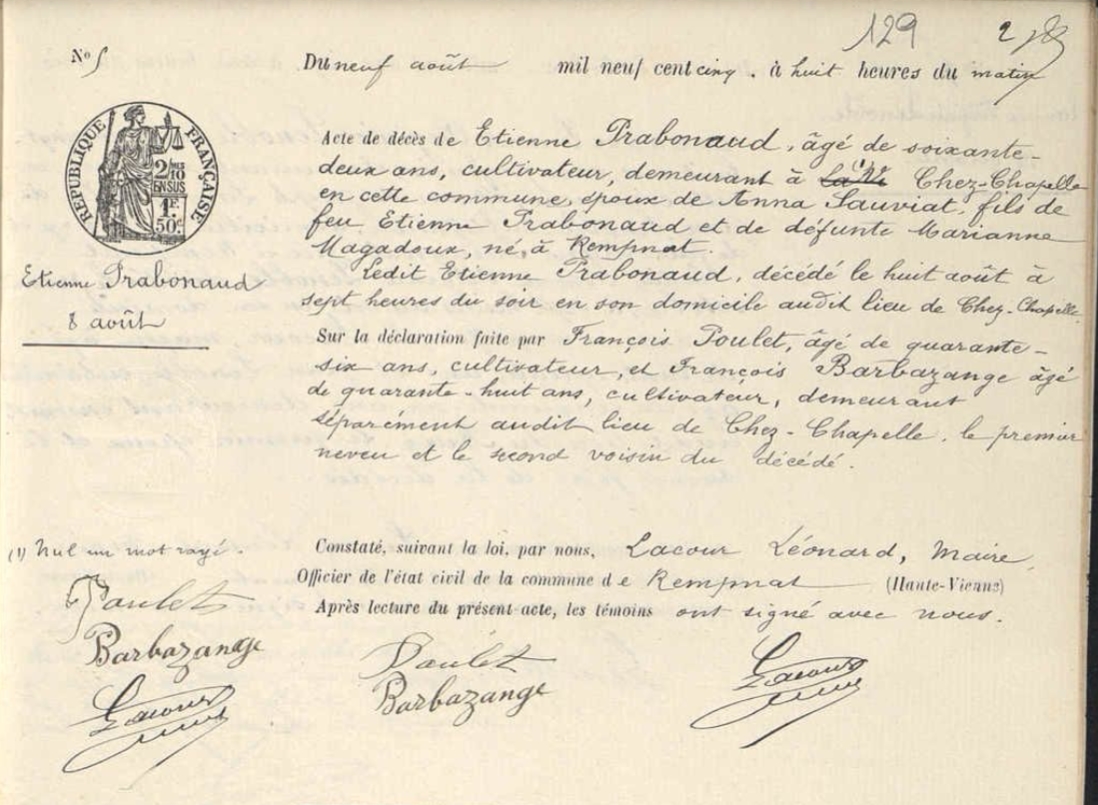 129
Nº 5
Du neuf août mil neuf cent cinq, à huit heures du matin
RÉPUBLIQUE FRANÇAISE
2/10 EN SUS
1F. 50c.
Etienne Trabonaud
8 août
Acte de décès de Etienne Trabonaud, âgé de soixante-
deux ans, cultivateur, demeurant à (1) Chez-Chapelle
en cette commune, époux de Anna Sauviat, fils de
feu Etienne Trabonaud et de défunte Marianne
Magadoux, né à Rempnat.
ledit Etienne Trabonaud, décédé le huit août à
sept heures du soir en son domicile audit lieu de Chez-Chapelle.
Sur la déclaration faite par François Poulet, âgé de quarante-
six ans, cultivateur, et François Barbazange âgé
de quarante-huit ans, cultivateur, demeurant
séparément audit lieu de Chez-Chapelle, le premier
neveu et le second voisin du décédé.
(1) Nul un mot rayé.
Poulet
Barbazange
Lacour
Constaté, suivant la loi, par nous, Lacour Léonard, Maire,
Officier de l'état civil de la commune de Rempnat (Haute-Vienne)
Après lecture du présent acte, les témoins ont signé avec nous.
Poulet
Barbazange
Lacour